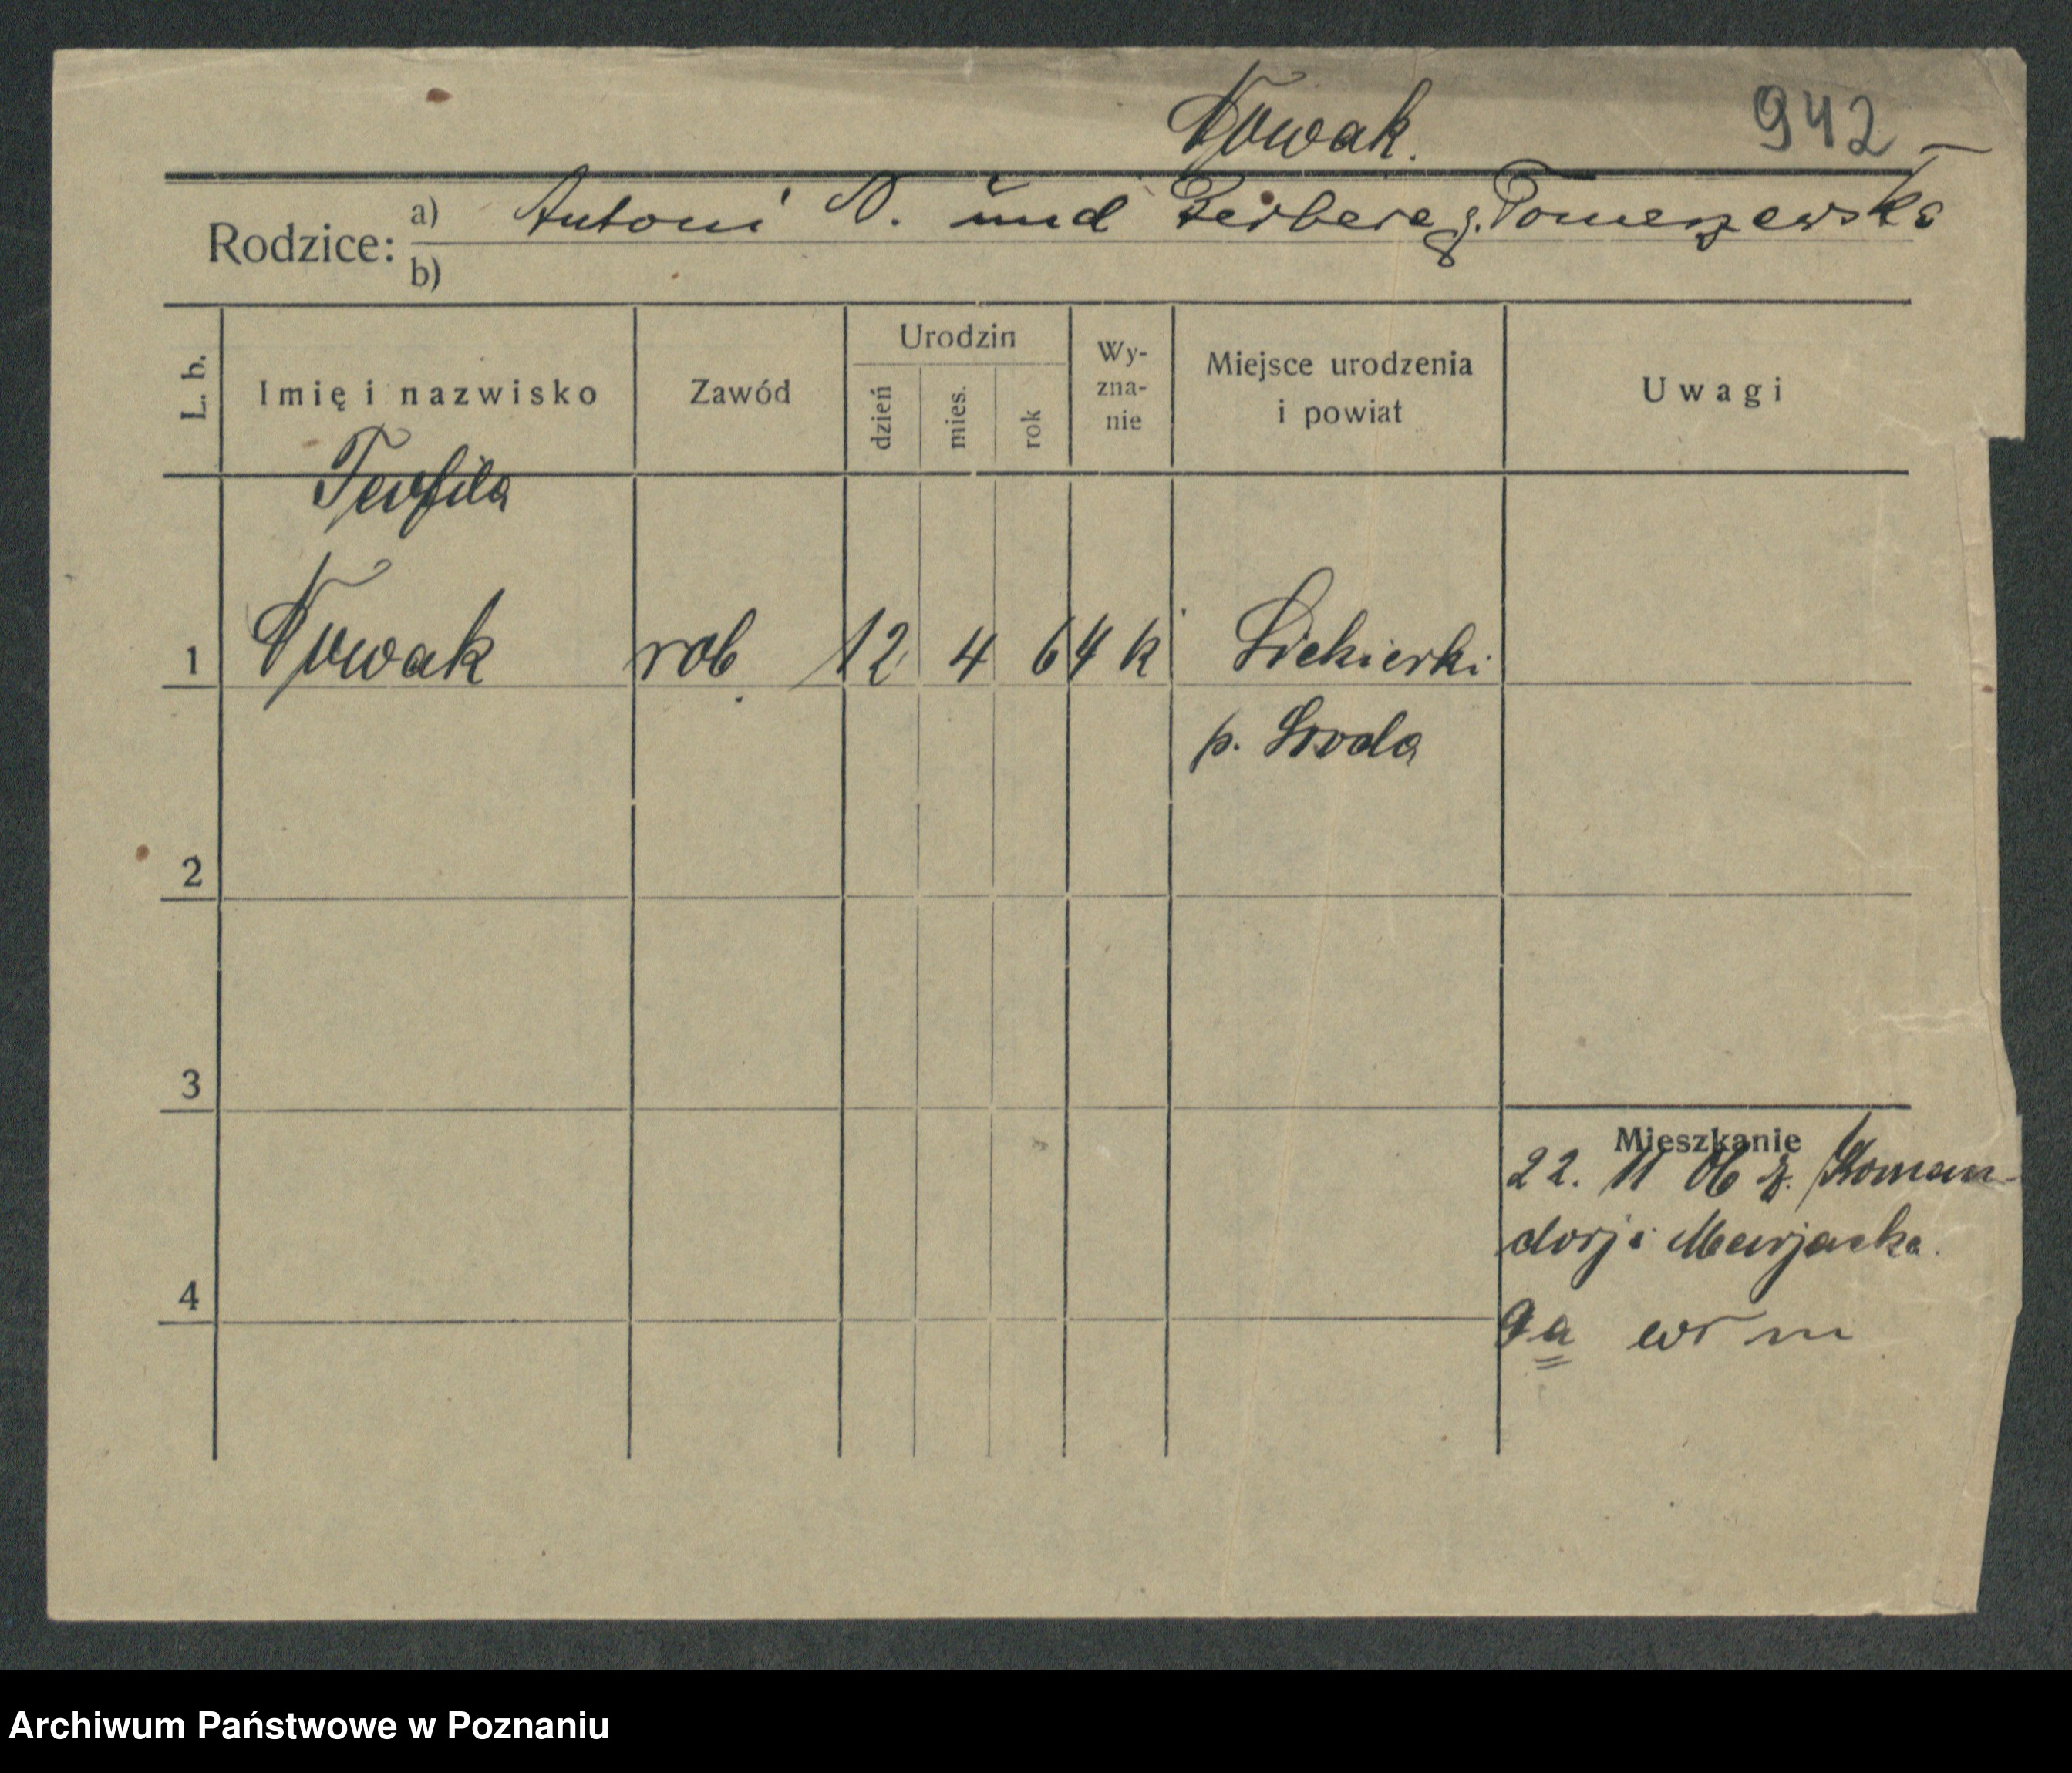 Nowak. 942
Rodzice: a) Antoni N. und Barbara g. Tomaszewska
b)
L. b. Imię i nazwisko Zawód Urodzin dzień mies. rok Wy-zna-nie Miejsce urodzenia i powiat Uwagi
Teofila
1 Nowak rob 12 4 64 k Siekierki
p. Sroda
2
3
Mieszkanie
22. 11 06 z. Koman-
dorji
4
9a
Archiwum Państwowe w Poznaniu